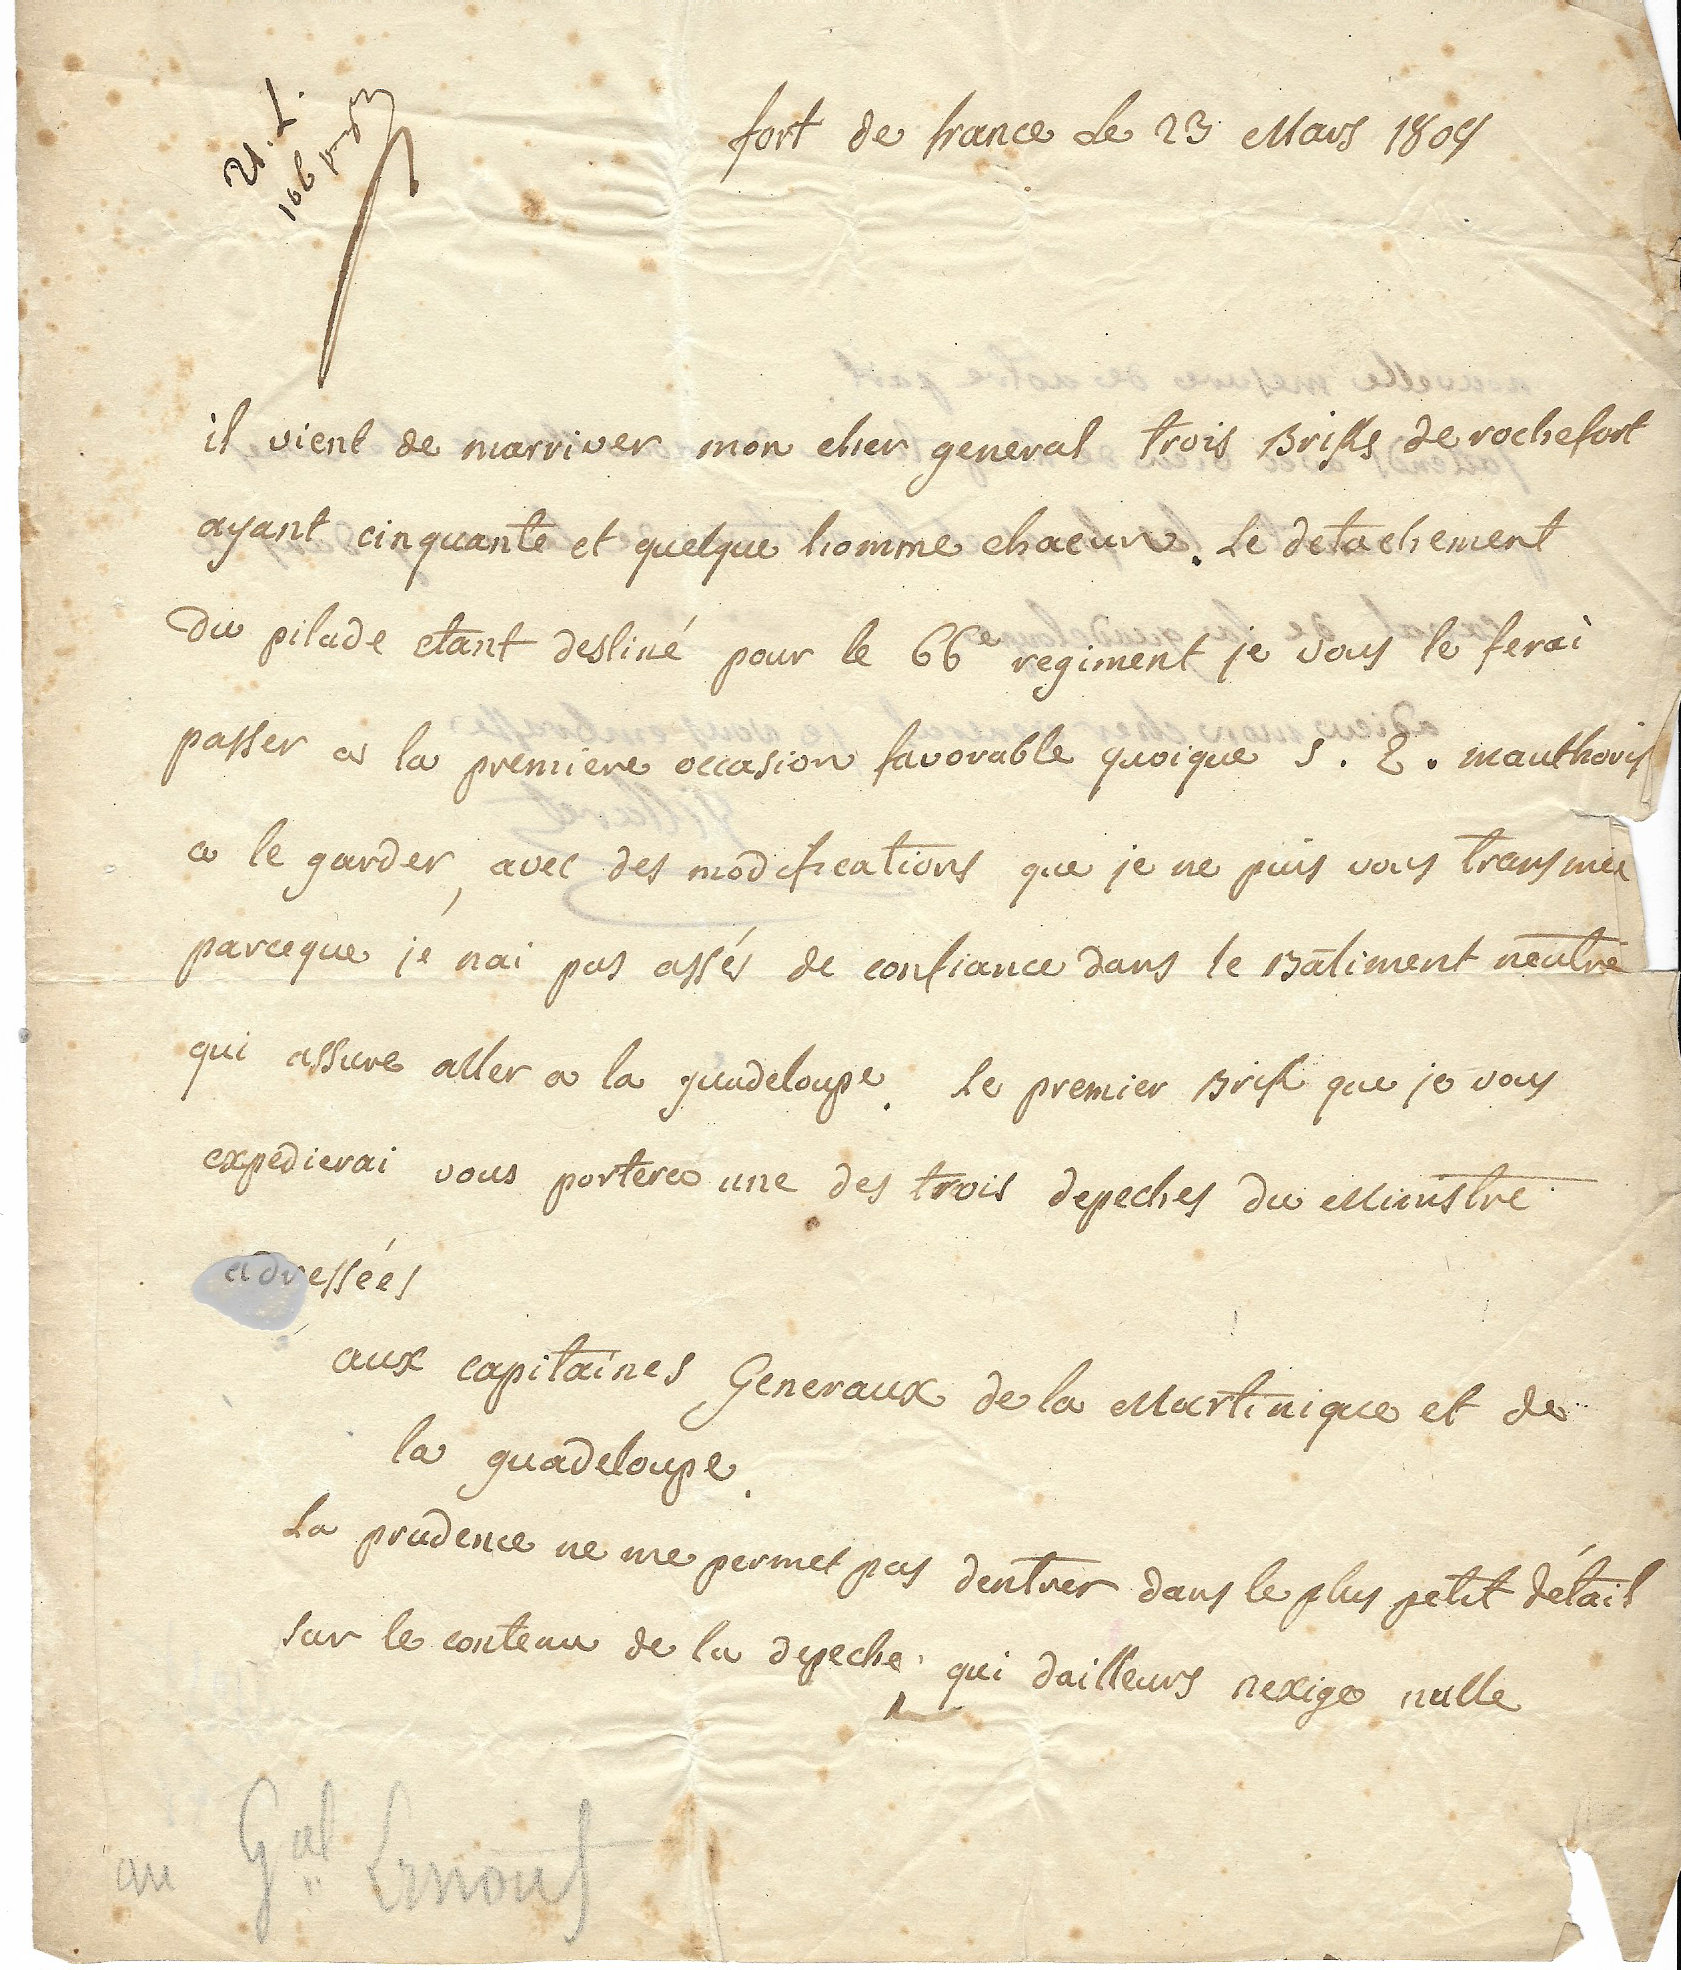 fort de france Le 23 Mars 1809
il vient de marriver mon cher general trois Briks de rochefort
ayant cinquante et quelque homme chacun. Le detachement
Du pilade etant destiné pour le 66e regiment je vous le ferai
passer a la premiere occasion favorable quoique S. E. mauthoris
a le garder, avec des modifications que je ne puis vous transmet
parceque je nai pas assés de confiance dans le Bâtiment neutre
qui assure aller a la guadeloupe. Le premier Brik que je vous
expédierai vous portera une des trois depeches du Ministre
adressées
aux capitaines Generaux de la Martinique et de
la guadeloupe.
La prudence ne me permet pas dentrer dans le plus petit détail
sur le contenu de la depeche qui dailleurs nexige nulle
au Gal Ernouf